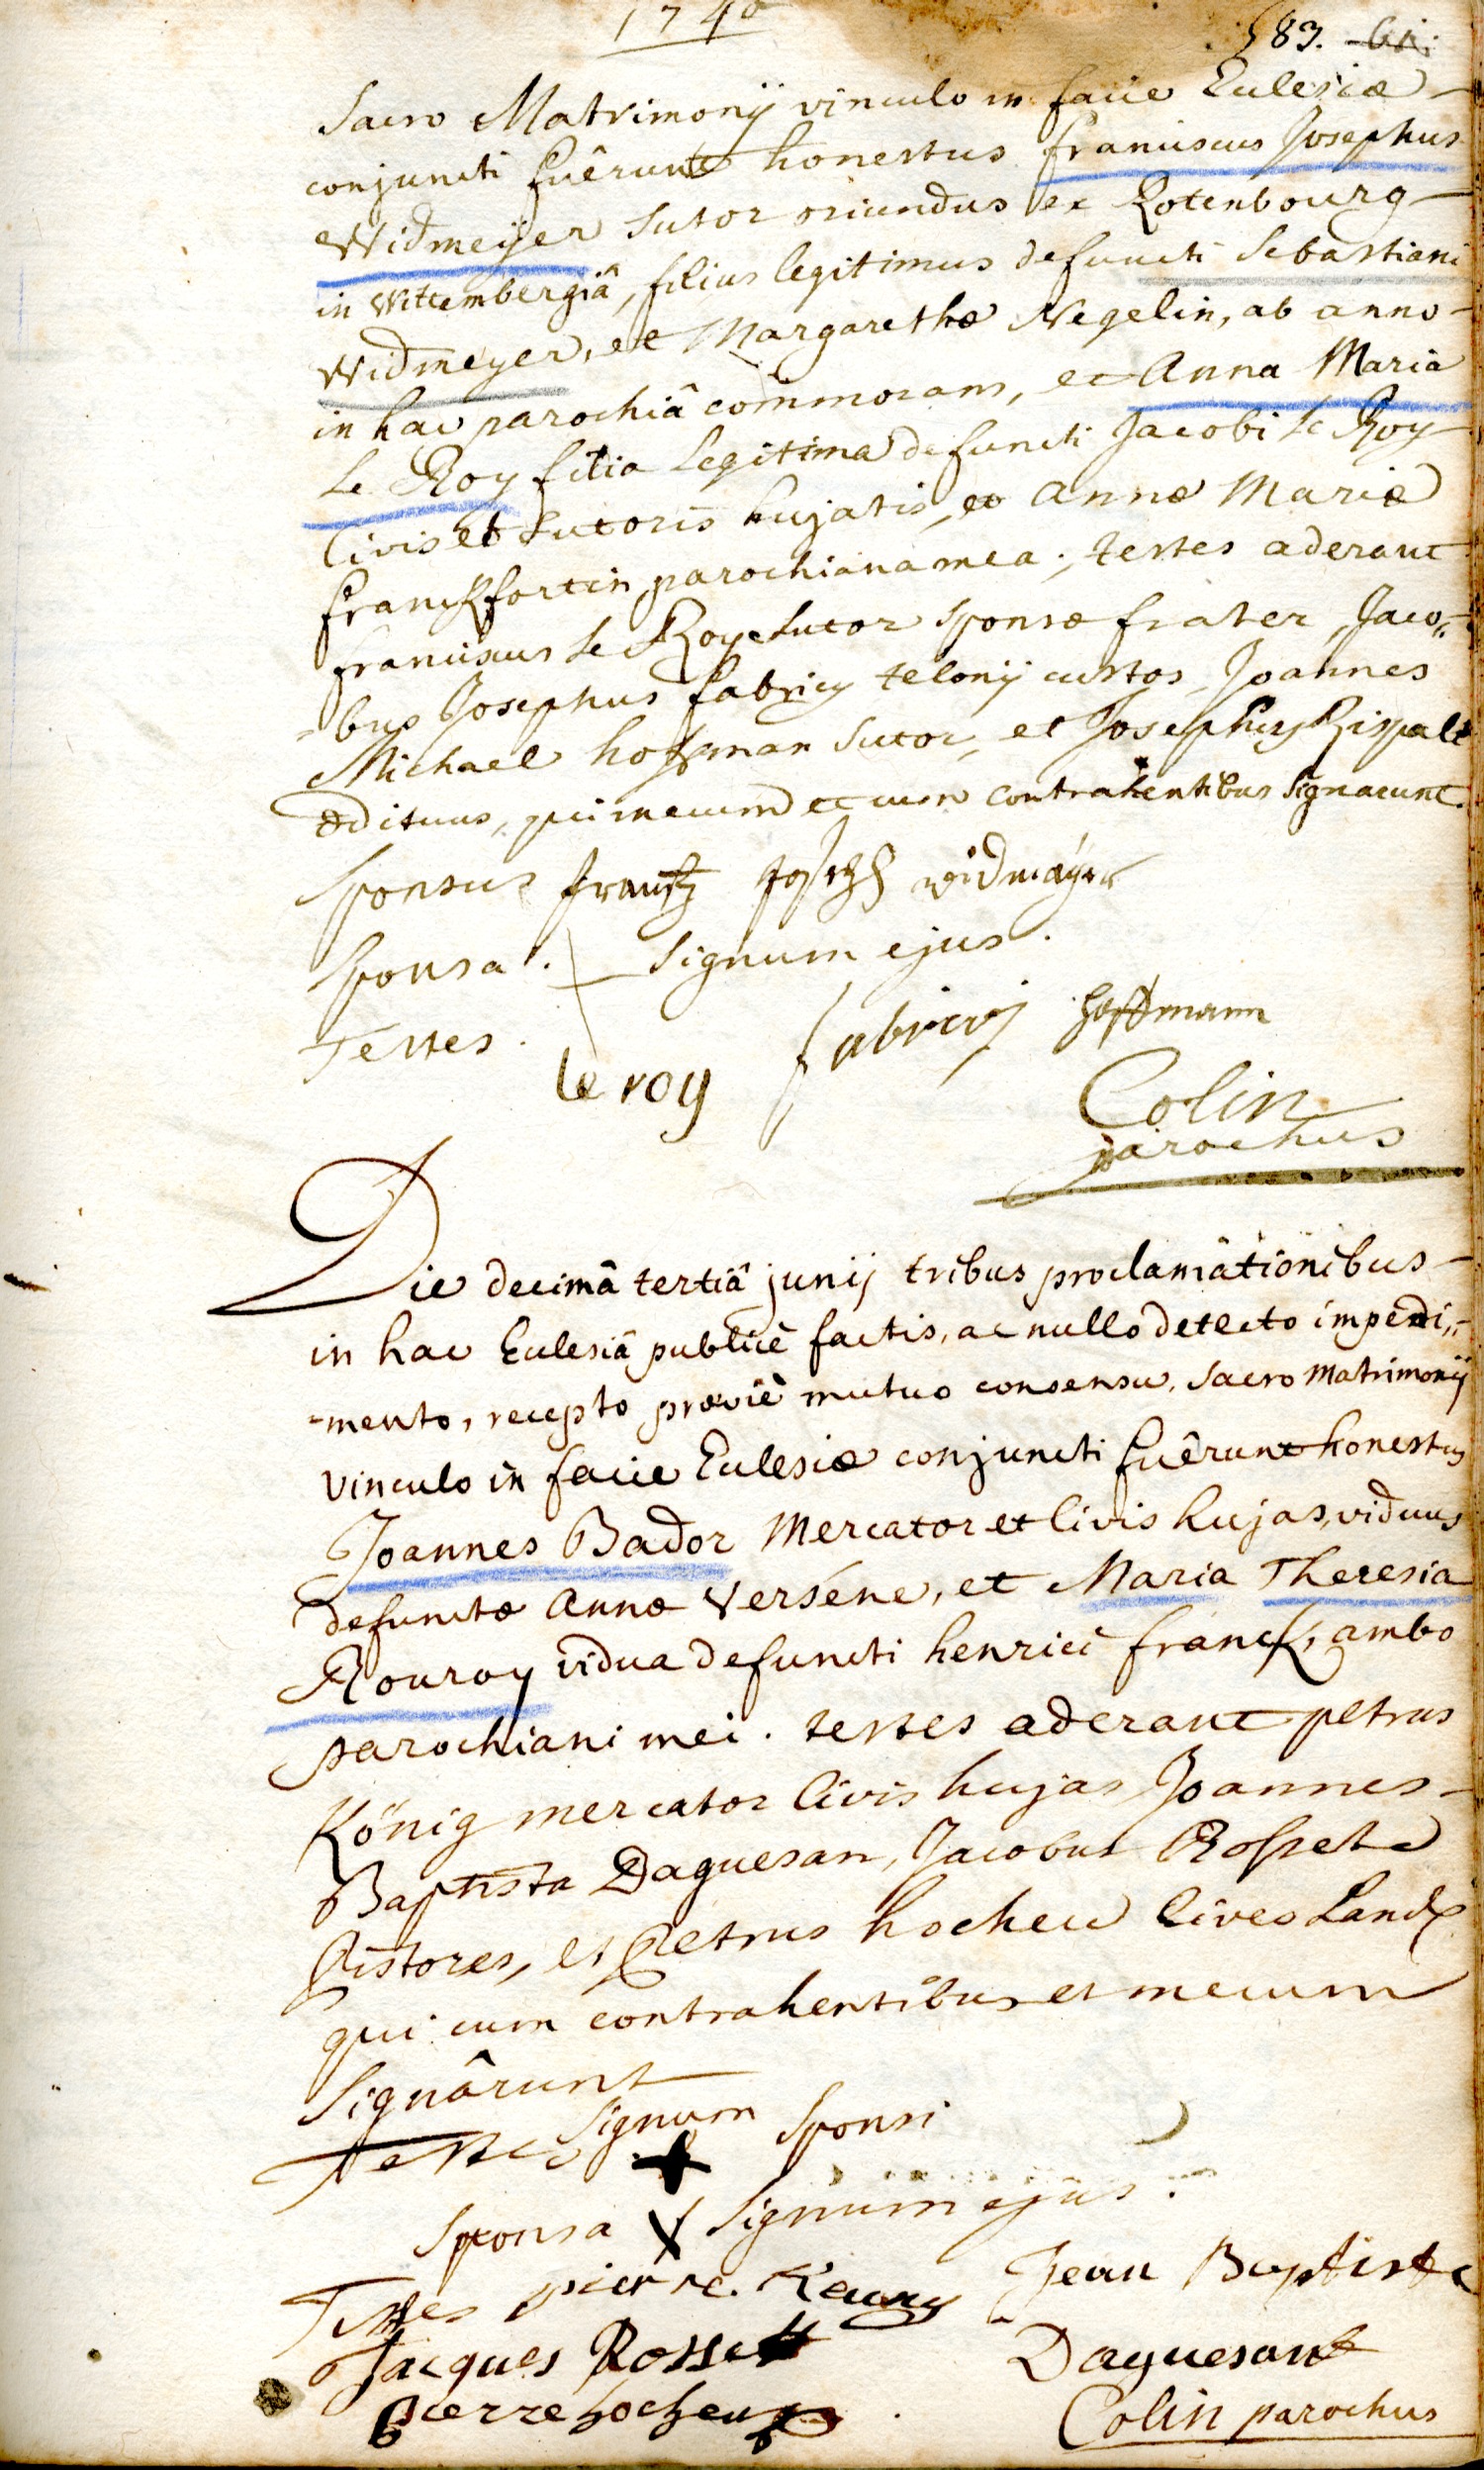 1740
583.
Sacro Matrimonij vinculo in facie Ecclesiæ
conjuncti fuêrunt honestus franciscus Josephus
Widmeijer Sutor oriundus ex Rotenbourg
in Wittembergiâ, filius legitimus defuncti Sebastiani
Widmeyer, et Margarethæ Negelin, ab anno
in hac parochiâ commorans, et Anna Maria
le Roy filia legitima defuncti Jacobi le Roy
Civis et Sutoris hujatis, et Annæ Mariæ
franckfortin parochiana mea; testes aderant
franciscus le Roy Sutor Sponsæ frater, Jaco„
-bus Josephus fabricy telonij custos, Joannes
Michael hoffman Sutor, et Josephus Rispalt
ædituus, qui mecum et cum contrahentibus signarunt.
Sponsus frantz Joseph widmäyer
Sponsa. Signum ejus.
Testes.
le roy fabricij hoffmann
Colin
parochus
Die decimâ tertiâ junij tribus proclamationibus
in hac Ecclesiâ publicè factis, ac nullo detecto impedi„
-mento, recepto præviè mutuo consensu, Sacro Matrimonij
vinculo in facie Ecclesiæ conjuncti fuêrunt honestus
Joannes Bador Mercator et Civis hujas, viduus
defunctæ Annæ Verséne, et Maria Theresia
Rouroy vidua defuncti henrici franck, ambo
parochiani mei. testes aderant petrus
König mercator Civis hujas Joannes
Baptista Daguesan, Jacobus Rosset
Pistores, et Petrus hocheu Cives Land.
qui cum contrahentibus et mecum
Signârunt
Testes Signum Sponsi
Sponsa Signum ejus.
Testes pierre Jean Baptiste
Jacques Rossett Daguesant
Pierre hocheux Colin parochus